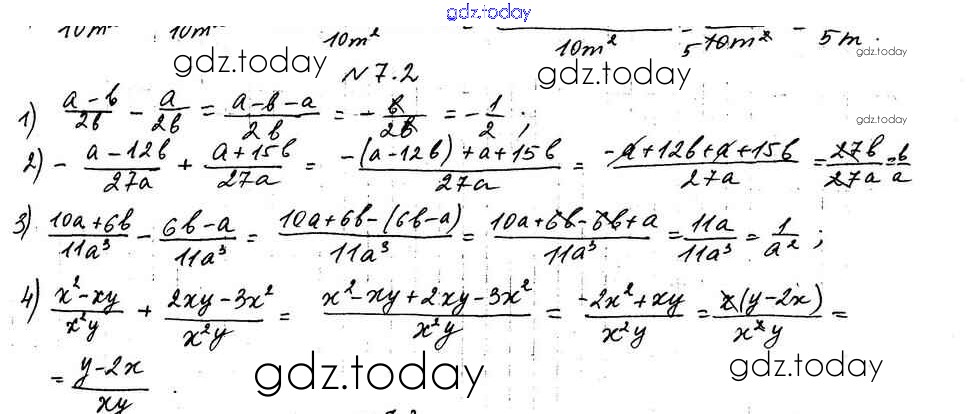 gdz.today
10m² 10m² 10m² 10m² 5 10m² 5m.
gdz.today gdz.today gdz.today
№7.2
1) (a-b)/2b - a/2b = (a-b-a)/2b = - b/2b = - 1/2 ;
gdz.today
2) - (a-12b)/27a + (a+15b)/27a = (-(a-12b)+a+15b)/27a = (-a+12b+a+15b)/27a = 27b/27a = b/a
3) (10a+6b)/11a³ - (6b-a)/11a³ = (10a+6b-(6b-a))/11a³ = (10a+6b-6b+a)/11a³ = 11a/11a³ = 1/a² ;
4) (x²-xy)/x²y + (2xy-3x²)/x²y = (x²-xy+2xy-3x²)/x²y = (-2x²+xy)/x²y = x(y-2x)/x²y =
= (y-2x)/xy .
gdz.today gdz.today